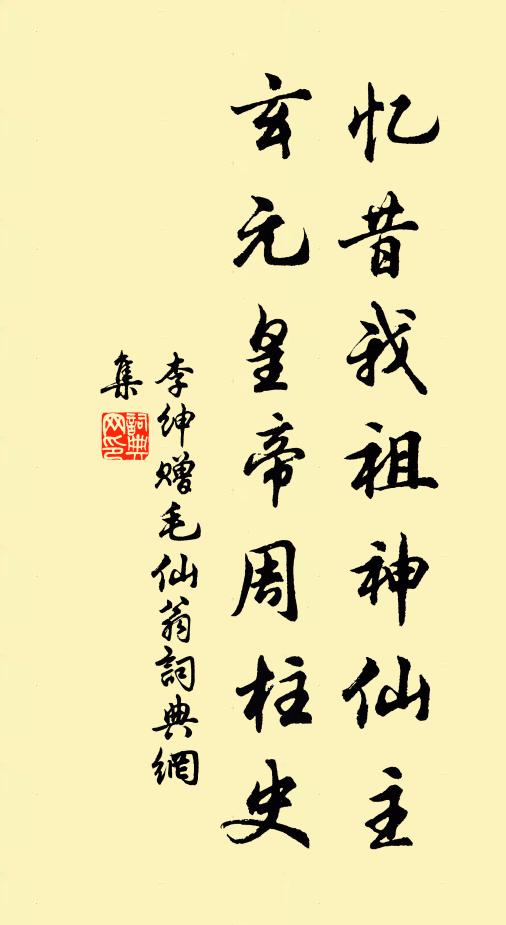 忆昔我祖神仙主
玄元皇帝周柱史
李绅赠毛仙翁詞典網
集
詞典
网印